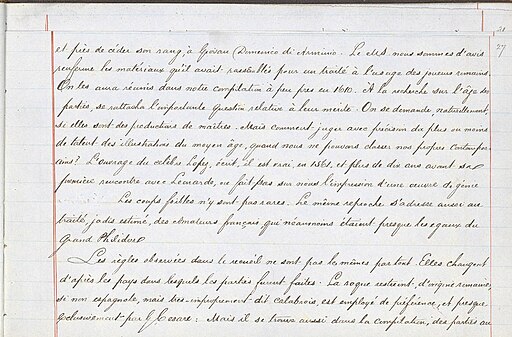 21
27
et près de céder son rang à Giovan (Domenico di Arminio. Le MS. nous sommes d'avis
renferme les matériaux qu'il avait rassemblés pour un traité à l'usage des joueurs romains
On les aura réunis dans notre compilation à peu près en 1610. À la recherche sur l'âge des
parties, se rattacha l'importante question relative à leur mérite. On se demande, naturellement,
si elles sont des productions de maîtres. Mais comment juger avec précision du plus ou moins
de talent des illustrations du moyen âge, quand nous ne pouvons classer nos propres contempor
ains? L'ouvrage du célèbre Lopez, écrit, il est vrai, en 1561, et plus de dix ans avant sa
première rencontre avec Leonardo, ne fait pas sur nous l'impression d'une œuvre de génie
Les coups faibles n'y sont pas rares. Le même reproche s'adresse aussi au
traité, jadis estimé, des amateurs français, qui néanmoins étaient presque les égaux du
Grand Philidor
Les règles observées dans le recueil ne sont pas les mêmes partout. Elles changent
d'après les pays dans lesquels les parties furent faites. La roque restreint, d'origine romaine,
si non espagnole, mais très-improprement dit Calabrois, est employé de préférence, et presque
exclusivement par G. Cesare: Mais il se trouve aussi dans la compilation, des parties au